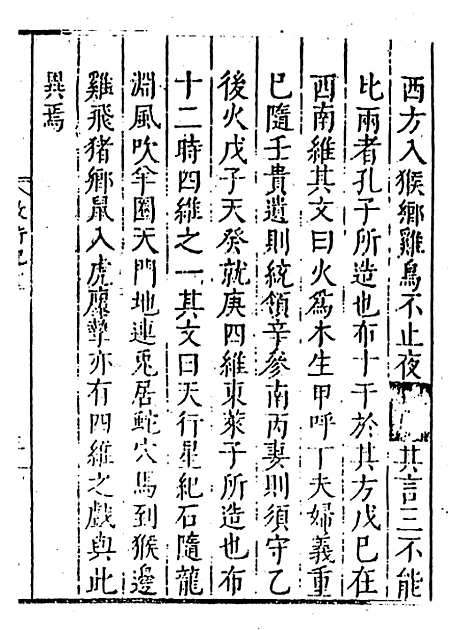 西方入猴鄉雞鳥不止夜其言三不能
比兩者孔子所造也布十干於其方戊巳在
西南維其文曰火爲木生甲呼丁夫婦義重
巳隨壬貴遺則統領辛參南丙妻則須守乙
後火戊子天癸就庚四維東萊子所造也布
十二時四維之一其文曰天行星紀石隨龍
淵風吹羊圈天門地連兎居蛇穴馬到猴邊
雞飛猪鄉鼠入虎廛摯亦有四維之戲與此
異焉